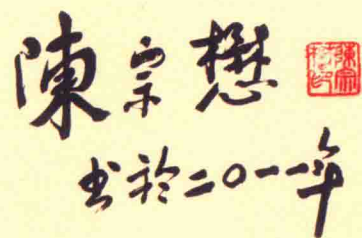 陳宗懋
书於二〇一一年